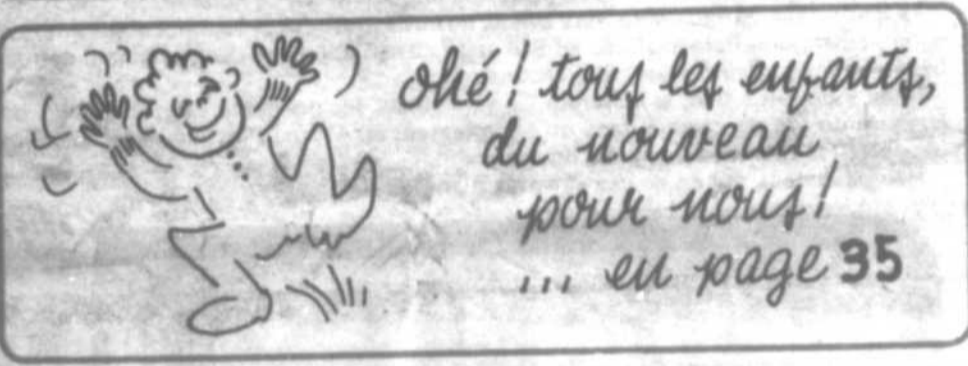 ohé! tous les enfants,
du nouveau
pour nous!
... en page 35